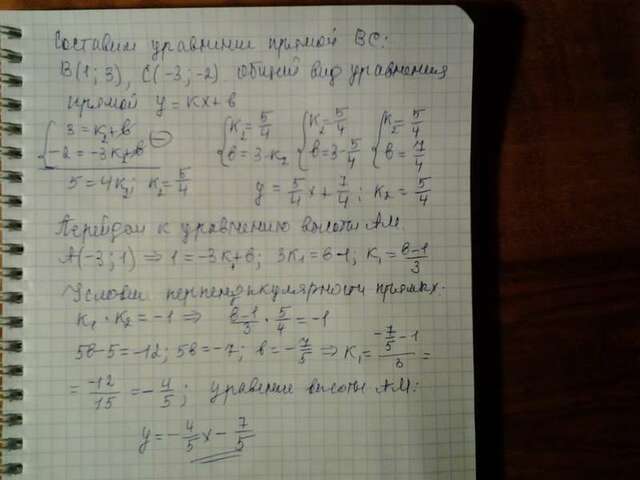 Составим уравнение прямой BC:
B(1; 3), C(-3; -2) Общий вид уравнения
прямой y = kx + b
{ 3 = k₂ + b
{ -2 = -3k₂ + b (−)
5 = 4k₂; k₂ = 5/4
{ k₂ = 5/4 { k₂ = 5/4 { k₂ = 5/4
{ b = 3 - k₂ { b = 3 - 5/4 { b = 7/4
y = 5/4 x + 7/4; k₂ = 5/4
Перейдем к уравнению высоты AM.
A(-3; 1) ⇒ 1 = -3k₁ + b; 3k₁ = b - 1; k₁ = (b-1)/3
Условие перпендикулярности прямых.
k₁ · k₂ = -1 ⇒ (b-1)/3 · 5/4 = -1
5b - 5 = -12; 5b = -7; b = -7/5 ⇒ k₁ = (-7/5 - 1)/3 =
= -12/15 = -4/5; уравение высоты AM:
y = -4/5 x - 7/5